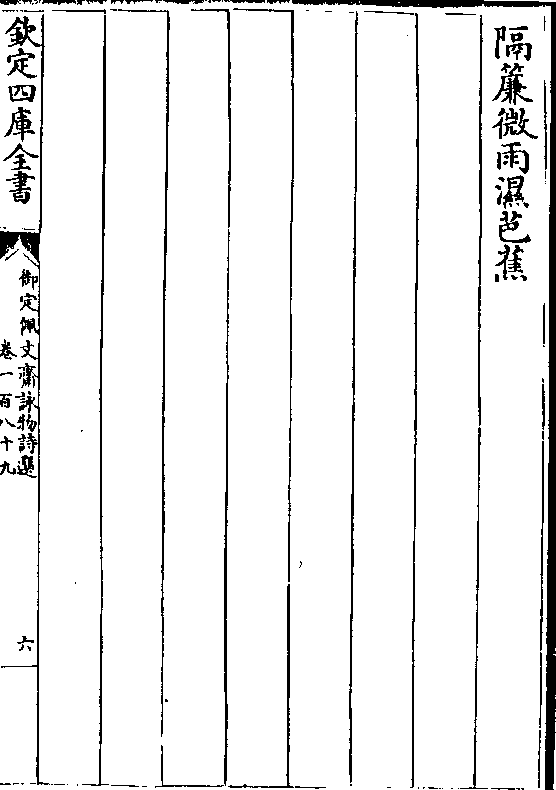 隔簾微雨濕芭蕉
欽定四庫全書
御定佩文齋詠物詩選
卷一百八十九
六